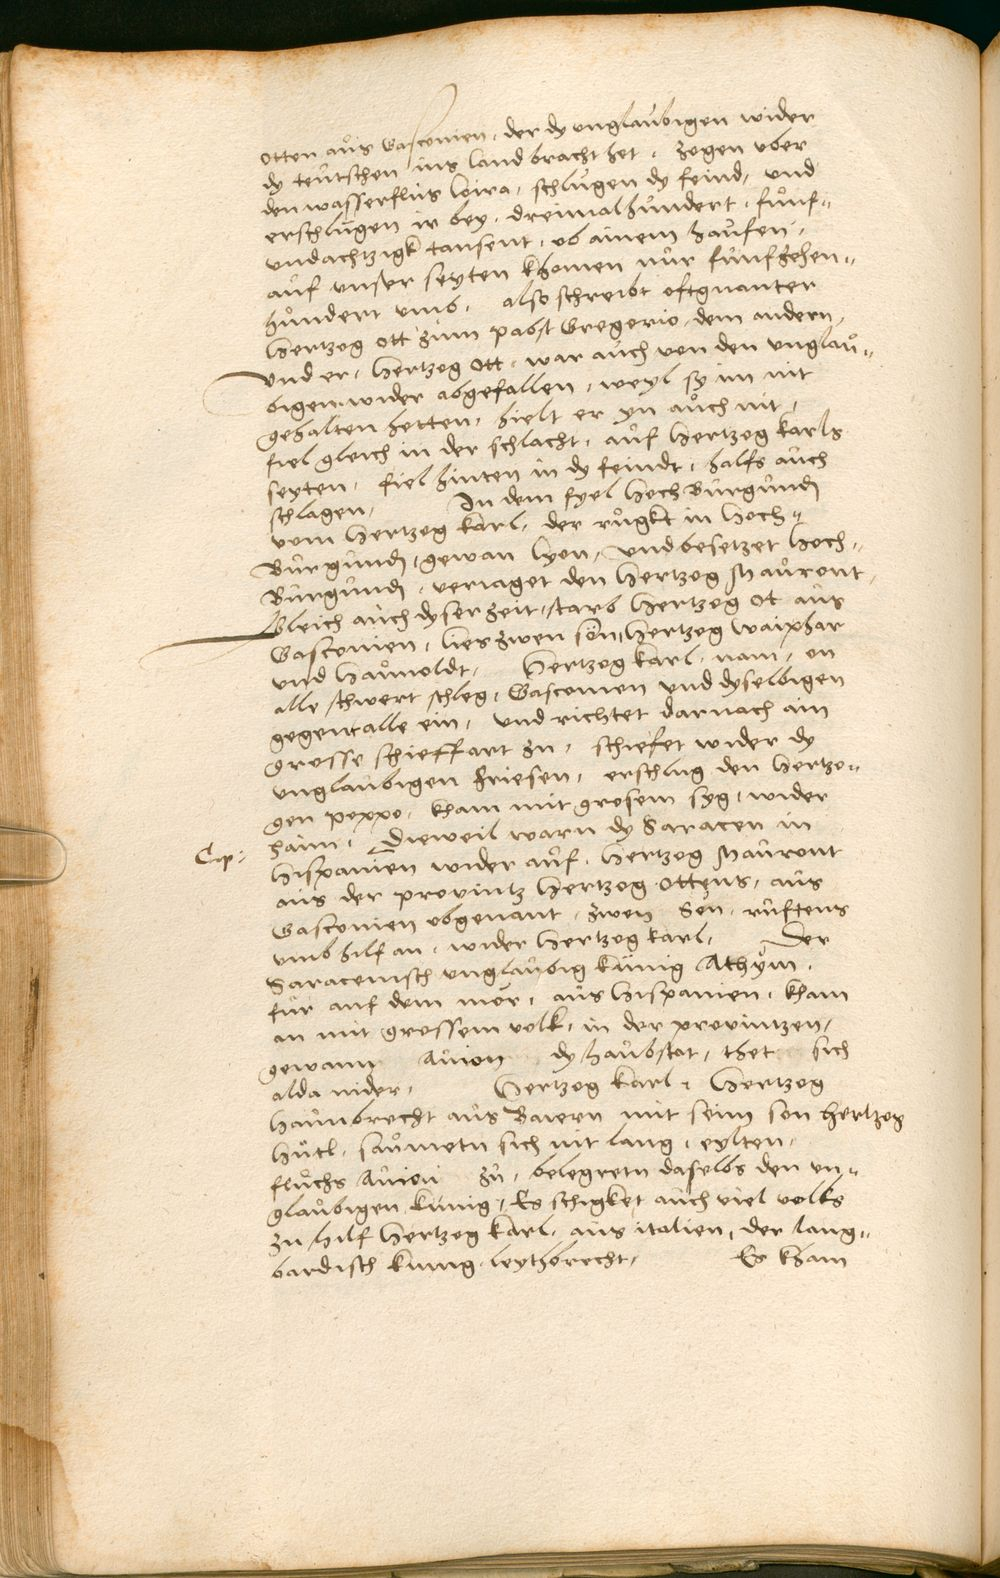 otten aus Gasconien, der dy unglaubigen wider
dy teutschen ins land bracht het, zogen uber
den wasserflus Loira, schlugen dy feind, und
erschlugen ir bey, dreimalhundert, funf=
undachtzigk tausent, ob ainem haufen,
auf unser seyten khomen nur funfzehen=
hundert umb, also schreibt oftgnanter
Hertzog ott zum pabst Gregorio dem andern,
und er, Hertzog Ott, war auch von den unglau=
bigen wider abgefallen, weyl sy im nit
gehalten hetten, hielt er yn auch nit,
fiel gleich in der schlacht, auf Hertzog Karls
seyten, fiel hinten in dy feindt, halfs auch
schlagen, In dem fyel Hoch Burgundj
vom Hertzog Karl, der rugkt in Hoch=
Burgundj, gewan Lyon, und besetzet Hoch=
Burgundj, veriaget den Hertzog Mauront,
Gleich auch dyser zeit, starb Hertzog Ot aus
Gasconien, lies zwen sön, Hertzog Waiphar
und Haunoldt, Hertzog Karl, nam, on
alle schwert schleg, Gasconien und dyselbigen
gegent alle ein, und richtet darnach ain
grosse schieffart zu, schiefet wider dy
unglaubigen Friesen, erschlug den Hertzo=
gen poppo, kham mit grosem syg, wider
haim, Dieweil warn dy Saracen in
Cap:
Hispanien wider auf, Hertzog Mauront
aus der provintz Hertzog Ottens, aus
Gasconien obgenant, zwen Sön, ruftens
umb hilf an, wider Hertzog Karl, Der
Saracenisch unglaubig künig Athym,
fur auf dem mör, aus Hispanien, kham
an mit grossem volk, in der provintzen,
gewann Avion dy haubstat, thet sich
alda nider, Hertzog Karl, Hertzog
Haunbrecht aus Baiern mit seim son Hertzog
Hutl, saumetn sich nit lang, eylten,
fluchs Avion zu, belegertn daselbs den un=
glaubigen künig, Es schigket auch viel volks
zu hilf Hertzog Karl, aus italien, der lang=
bardisch kunig Leythbrecht, Es kham